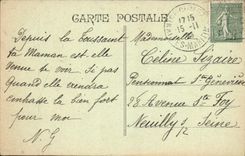 CARTE POSTALE
Depuis la Toussaint
ta Maman est elle
venue te voir. Si pas
Quand elle viendra
embrasse la bien fort
pour moi
N. G
Mademoiselle
Céline Lezaire
Pensionnat Ste Geneviève
22 Avenue Ste Foy
Neuilly s/ Seine